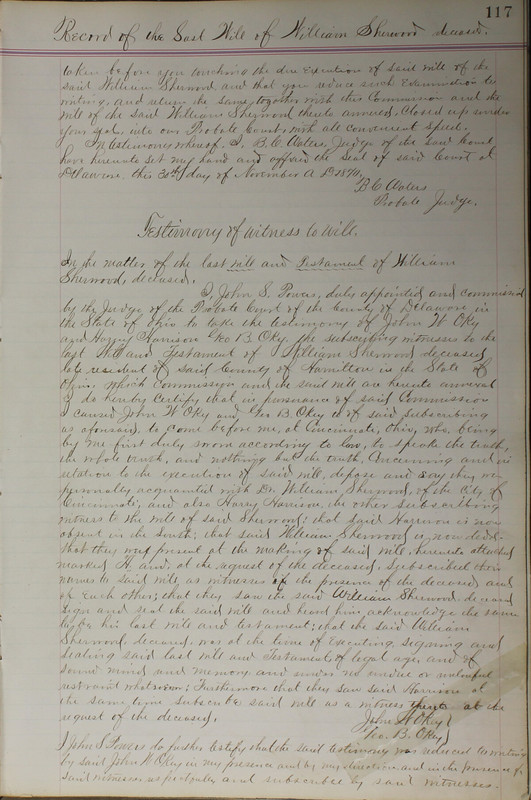 117
Record of the Last Will of William Sherwood deceased.
taken before you touching the due execution of said will of the
said William Sherwood and that you reduce such Examination to
writing, and return the same, together with this Commission and the
will of the said William Sherwood thereto annexed, closed up under
your seal, into our Probate Court, with all convenient speed.
In testimony whereof, I, B.C. Waters, Judge of the said Court
have hereunto set my hand and affixed the Seal of said Court at
Delaware this 30th day of November A.D. 1874.
B C Waters
Probate Judge.
Testimony of Witness to Will.
In the matter of the last will and Testament of William
Sherwood, deceased.
I, John S. Powers, duly appointed and commissioned
by the Judge of the Probate Court of the County of Delaware, in
the State of Ohio to take the testimony of John W Okey
and Harry Harrison Geo B. Okey, the subscribing witnesses to the
last Will and Testament of William Sherwood deceased
late resident of said County of Hamilton in the State of
Ohio, which commission and the said will are hereto annexed
I do hereby certify that in pursuance of said Commission
I caused John W Okey and Geo B. Okey of said subscribing
as aforesaid, to come before me, at Cincinnati, Ohio, who, being
by me first duly sworn according to law, to speak the truth,
the whole truth, and nothing but the truth, concerning and in
relation to the execution of said will, depose and say they were
personally acquainted with Dr. William Sherwood, of the City of
Cincinnati, and also Harry Harrison, the other subscribing
witness to the will of said Sherwood; that said Harrison is now
absent in the South; that said William Sherwood is now dead;
that they were present at the making of said will, hereunto attached
marked A. and, at the request of the deceased, subscribed their
names to said will as witnesses in the presence of the deceased and
of each other; that they saw the said William Sherwood, deceased
sign and seal the said will and heard him acknowledge the same
to be his last will and testament; that the said William
Sherwood, deceased, was at the time of executing, signing and
sealing said last will and Testament, of legal age, and of
sound mind and memory and under no undue or unlawful
restraint whatsoever; Furthermore that they saw said Harrison at
the same time subscribe said will as a witness thereto at the
request of the deceased.
John W Okey
Geo. B. Okey
I John S Powers do further testify that the said testimony was reduced to writing
by said John W Okey in my presence and by my direction and in the presence of
said witnesses respectively and subscribed by said witnesses.